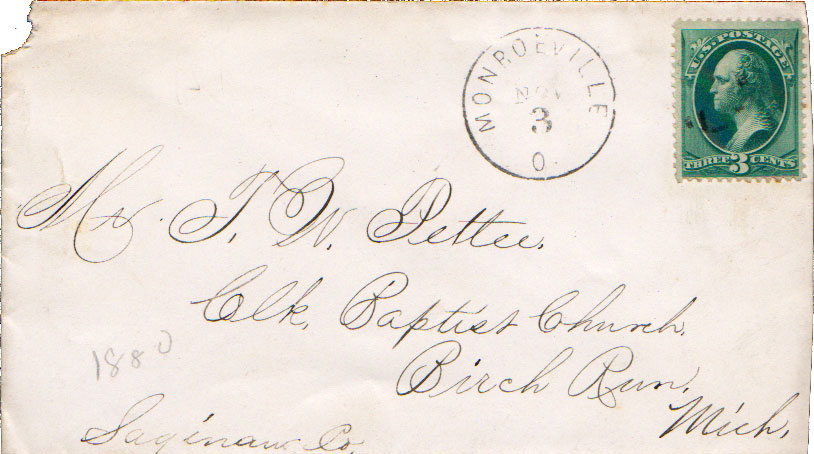 MONROEVILLE
NOV
3
O
U.S. POSTAGE
THREE 3 CENTS
Mr. T. W. Pettee.
Clk. Baptist Church.
Birch Run.
Mich.
1880
Saginaw Co.